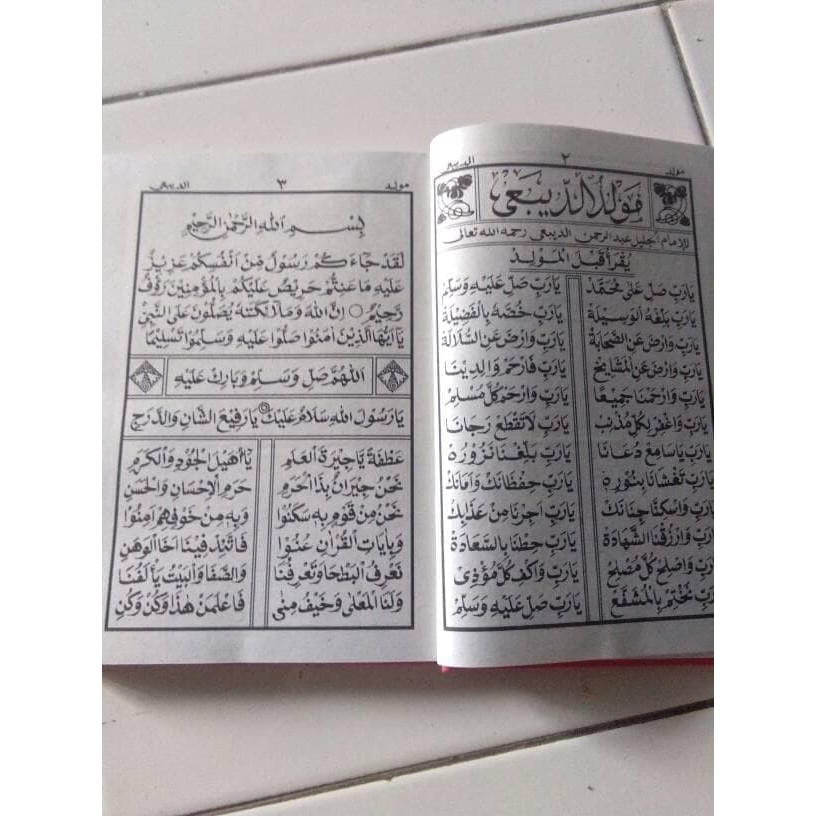 مولد ٢ الديبعي
مَوْلِدُ الدِّيبَعِى
للإمام الجليل عبد الرحمن الديبعى رحمه الله تعالى
يُقْرَأُ قَبْلَ الْمَوْلِدِ
يَارَبِّ صَلِّ عَلَى مُحَمَّدْ يَارَبِّ صَلِّ عَلَيْهِ وَسَلِّمْ
يَارَبِّ بَلِّغْهُ الْوَسِيْلَةْ يَارَبِّ خُصَّهُ بِالْفَضِيْلَةْ
يَارَبِّ وَارْضَ عَنِ الصَّحَابَةْ يَارَبِّ وَارْضَ عَنِ السُّلَالَةْ
يَارَبِّ وَارْضَ عَنِ الْمَشَايِخْ يَارَبِّ فَارْحَمْ وَالِدِيْنَا
يَارَبِّ وَارْحَمْنَا جَمِيْعًا يَارَبِّ وَارْحَمْ كُلَّ مُسْلِمْ
يَارَبِّ وَاغْفِرْ لِكُلِّ مُذْنِبْ يَارَبِّ لَاتَقْطَعْ رَجَانَا
يَارَبِّ يَاسَامِعْ دُعَانَا يَارَبِّ بَلِّغْنَا نَزُوْرُهْ
يَارَبِّ تَغْشَانَا بِنُوْرِهْ يَارَبِّ حِفْظَانَكْ وَاَمَانَكْ
يَارَبِّ وَاسْكِنَّا جِنَانَكْ يَارَبِّ اَجِرْنَا مِنْ عَذَابِكْ
يَارَبِّ وَارْزُقْنَا الشَّهَادَةْ يَارَبِّ حِطْنَا بِالسَّعَادَةْ
يَارَبِّ وَاصْلِحْ كُلَّ مُصْلِحْ يَارَبِّ وَاكْفِ كُلَّ مُؤْذِى
يَارَبِّ نَخْتِمْ بِالْمُشَفَّعْ يَارَبِّ صَلِّ عَلَيْهِ وَسَلِّمْ
مولد ٣ الديبعي
بِسْمِ اللهِ الرَّحْمٰنِ الرَّحِيْمِ
لَقَدْ جَاءَكُمْ رَسُوْلٌ مِنْ اَنْفُسِكُمْ عَزِيْزٌ
عَلَيْهِ مَاعَنِتُّمْ حَرِيْصٌ عَلَيْكُمْ بِالْمُؤْمِنِيْنَ رَؤُفٌ
رَحِيْمٌ ○ اِنَّ اللهَ وَمَلَآئِكَتَهُ يُصَلُّوْنَ عَلَى النَّبِيِّ
يَآ اَيُّهَا الَّذِيْنَ اٰمَنُوْا صَلُّوْا عَلَيْهِ وَسَلِّمُوْا تَسْلِيْمًا
اَللّٰهُمَّ صَلِّ وَسَلِّمْ وَبَارِكْ عَلَيْهِ
يَارَسُوْلَ اللهِ سَلَامٌ عَلَيْكَ يَارَفِيْعَ الشَّانِ وَالدَّرَجِ
عَطْفَةً يَاجِيْرَةَ الْعَلَمِ يَآاُهَيْلَ الْجُوْدِ وَالْكَرَمِ
نَحْنُ جِيْرَانٌ بِذَا الْحَرَمِ حَرَمِ الْاِحْسَانِ وَالْحَسَنِ
نَحْنُ مِنْ قَوْمٍ بِهِ سَكَنُوْا وَبِهِ مِنْ خَوْفِهِمْ اَمِنُوْا
وَبِاٰيَاتِ الْقُرْاٰنِ عُنُوْا فَاتَّئِدْ فِيْنَا اَخَا الْوَهَنِ
نَعْرِفُ الْبَطْحَا وَتَعْرِفُنَا وَالصَّفَا وَالْبَيْتُ يَأْلَفُنَا
وَلَنَا الْمَعْلَى وَخَيْفُ مِنٰى فَاعْلَمَنْ هٰذَا وَكُنْ وَكُنِ